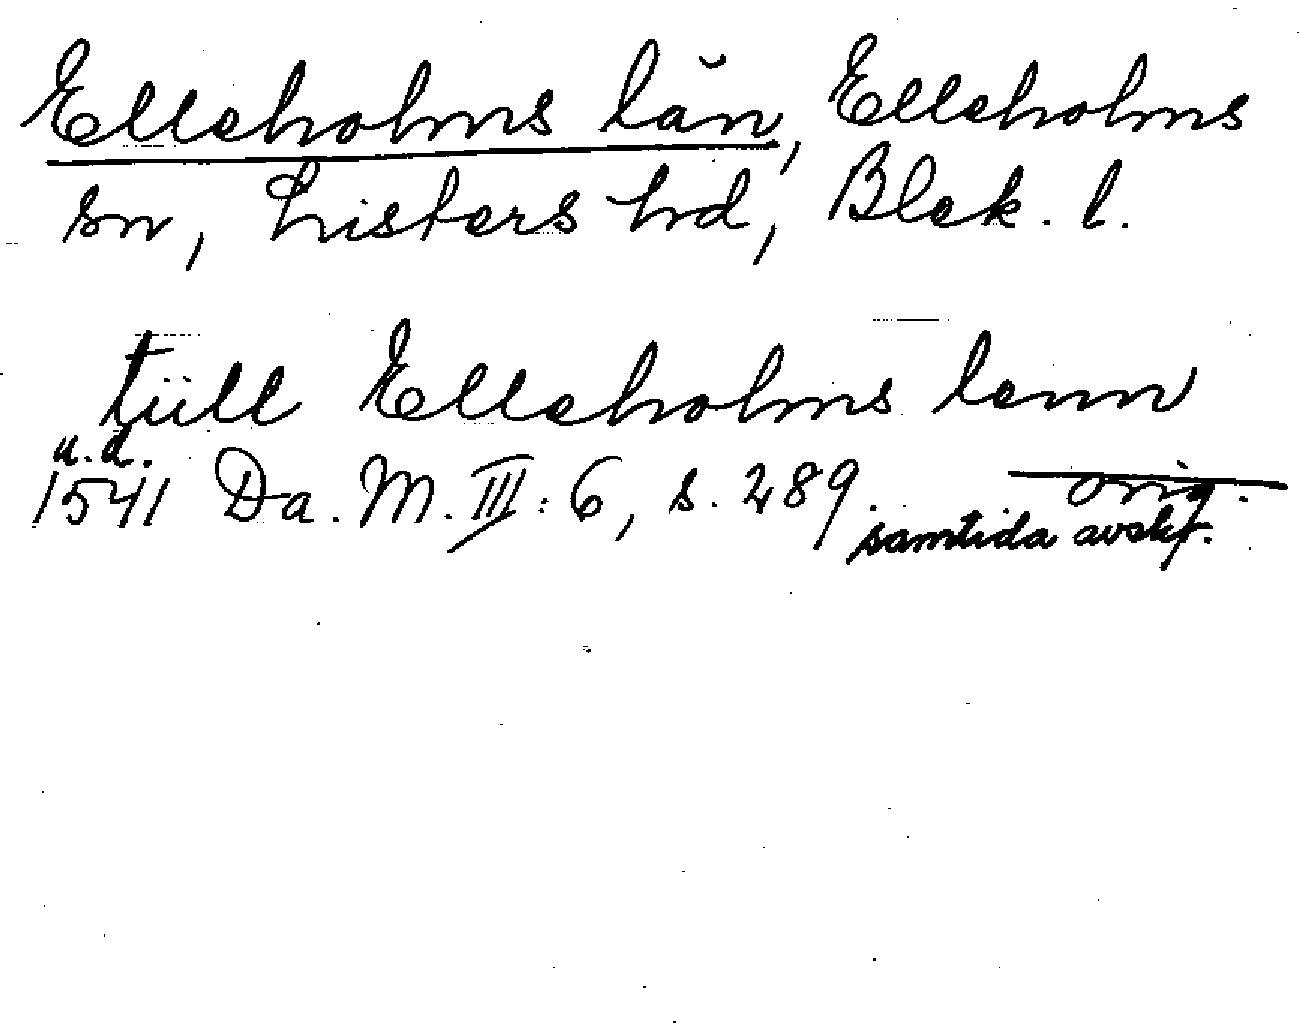 Elleholms län, Elleholms
sn, Listers hd, Blek. l.
tüll Elleholms lenn
u.d.
1541 Da. M. III: 6, s. 289. orig.
samtida avskr.